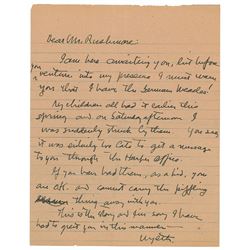 Dear Mr. Rushmore:
I am here awaiting you, but before
you venture into my presence I must warn
you that I have the German Measles!
My children all had it earlier this
spring and on Saturday afternoon I
was suddenly struck by them. You see,
it was entirely too late to get a message
to you through the Harper office.
If you have had them, as a kid, you
are OK. and cannot carry the piffling
thing away with you.
This is the story and I'm sorry I have
had to greet you in this manner
Wyeth